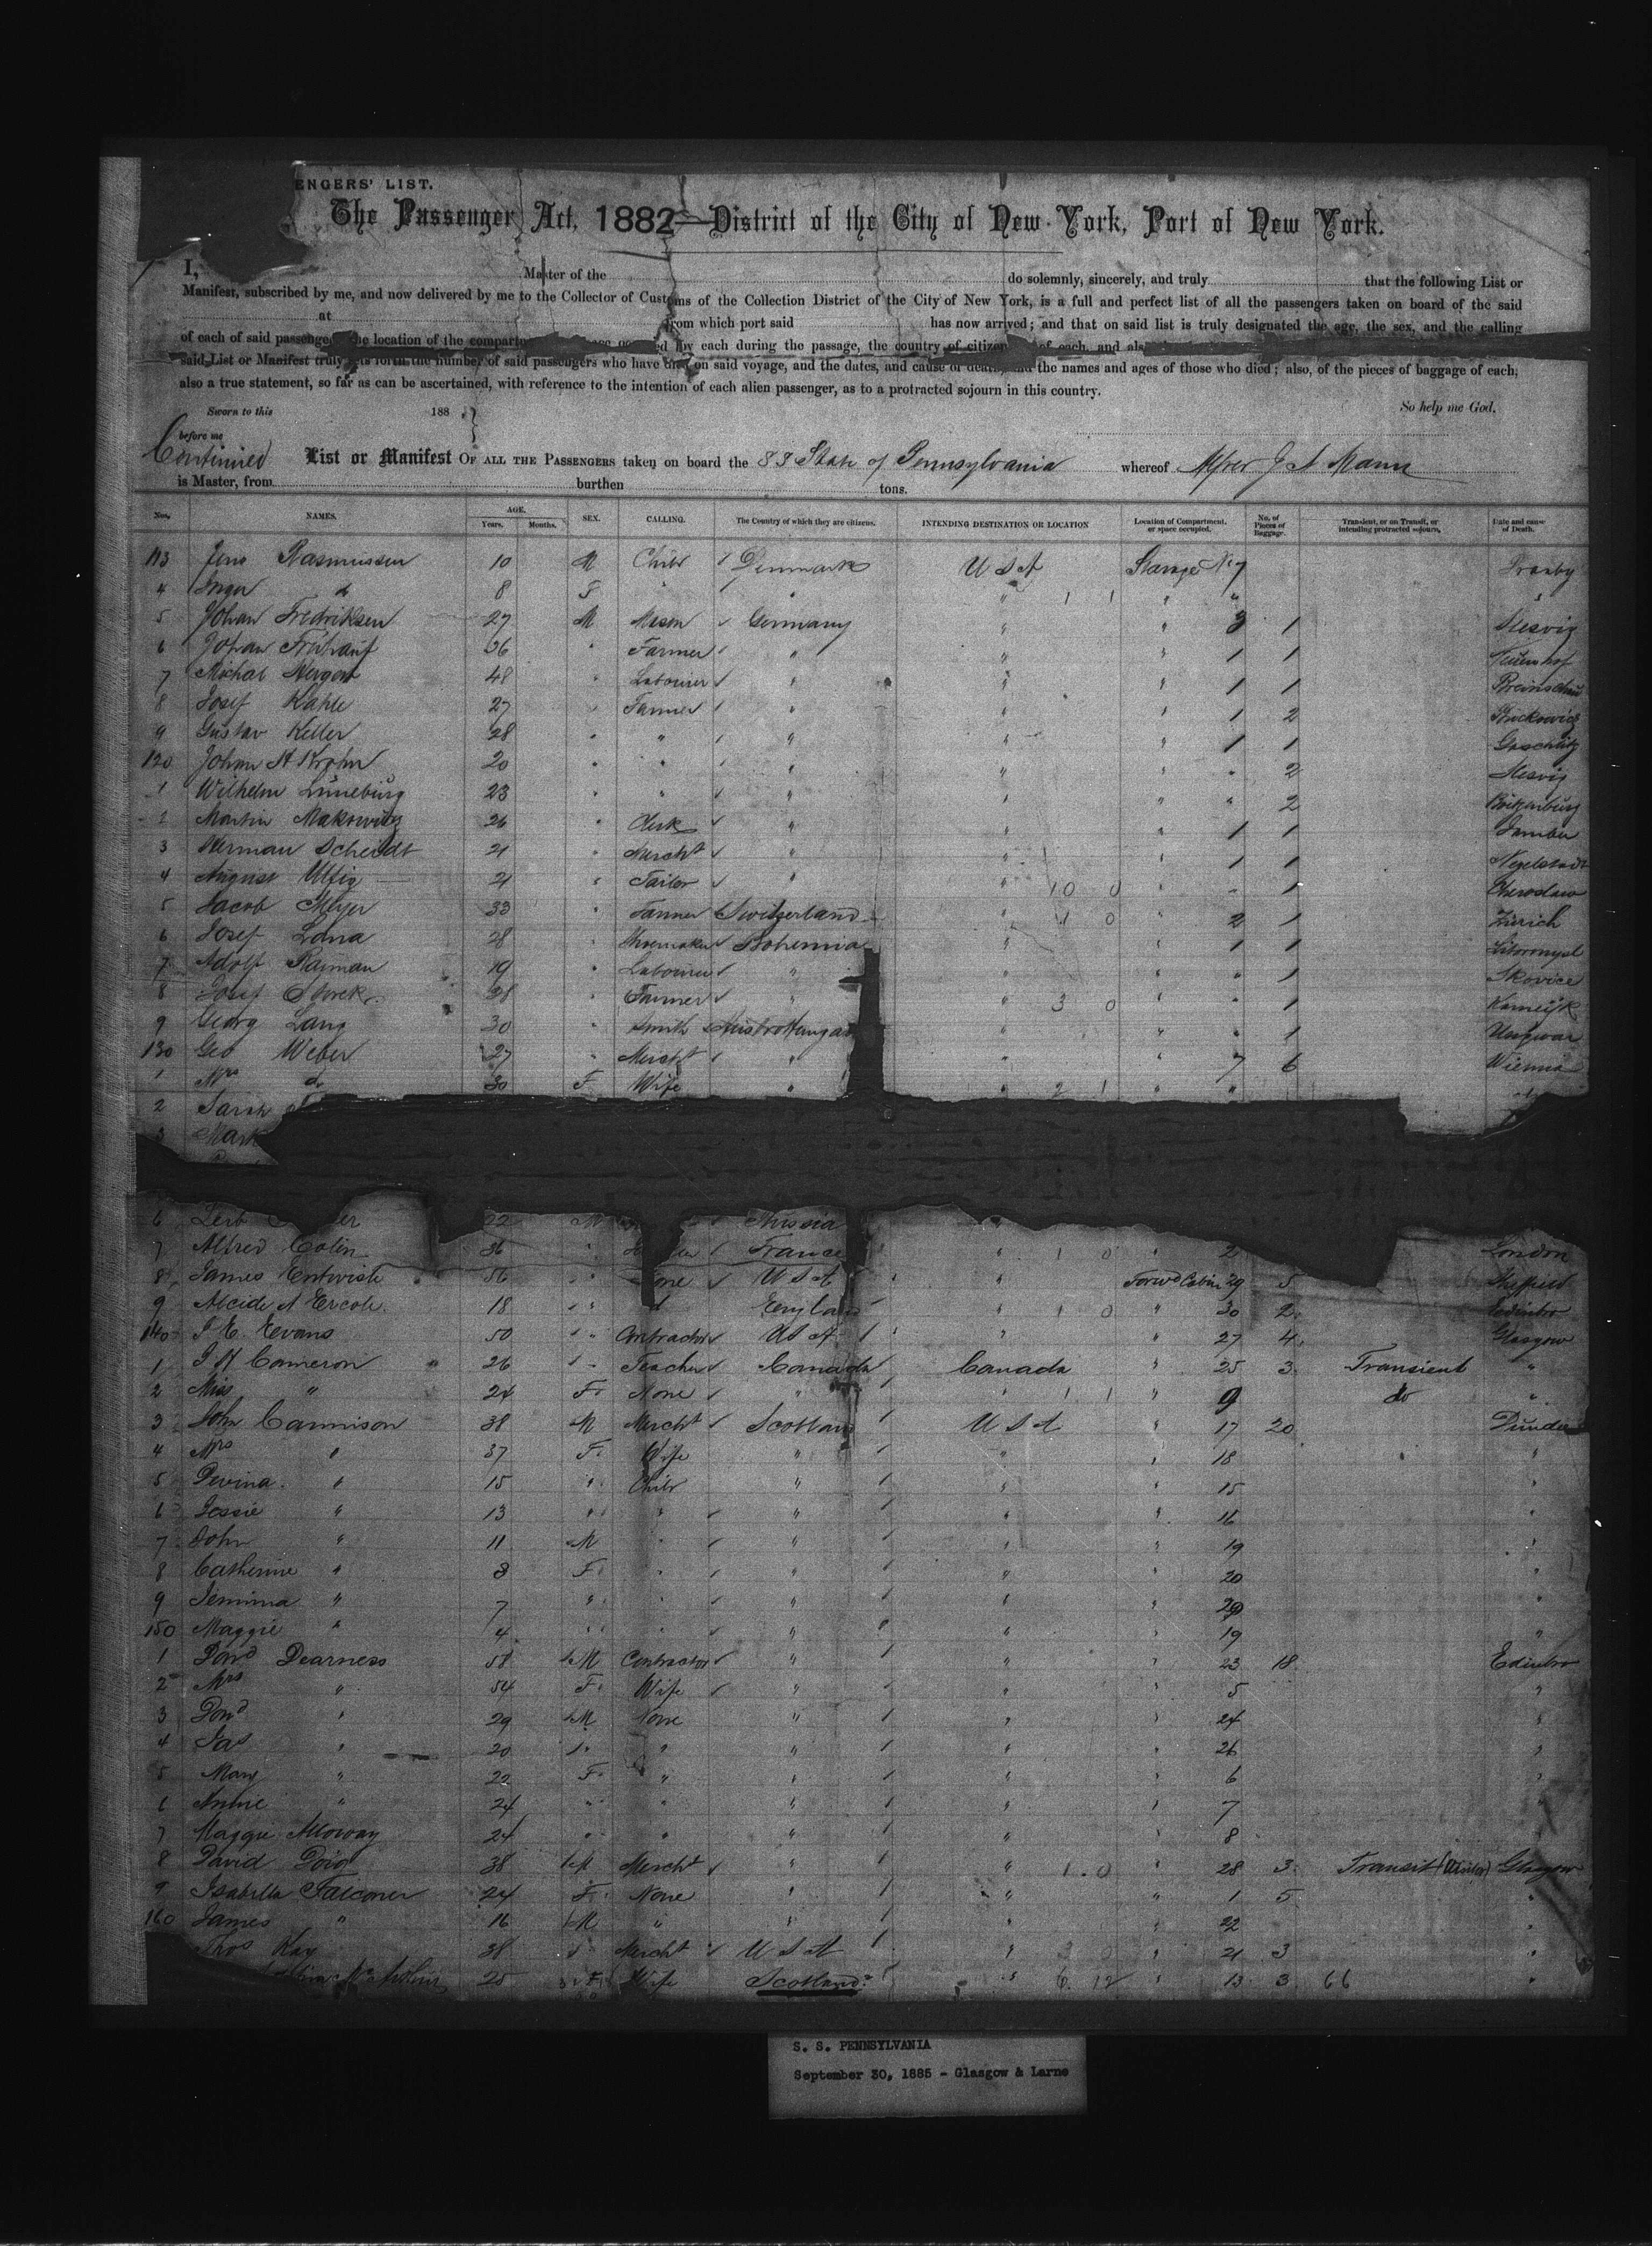 ENGERS' LIST.
The Passenger Act, 1882—District of the City of New York, Port of New York.
I, Master of the do solemnly, sincerely, and truly that the following List or
Manifest, subscribed by me, and now delivered by me to the Collector of Customs of the Collection District of the City of New York, is a full and perfect list of all the passengers taken on board of the said
at from which port said has now arrived; and that on said list is truly designated the age, the sex, and the calling
of each of said passenge he location of the compartm ed by each during the passage, the country of citizen of each, and als
said List or Manifest truly sets forth the number of said passengers who have died on said voyage, and the dates, and cause of death, and the names and ages of those who died; also, of the pieces of baggage of each;
also a true statement, so far as can be ascertained, with reference to the intention of each alien passenger, as to a protracted sojourn in this country.
Sworn to this 188 So help me God.
before me
Continued List or Manifest OF ALL THE PASSENGERS taken on board the SS State of Pennsylvania whereof Alfred J A Mann
is Master, from burthen tons.
Nos. NAMES. AGE. Years. Months. SEX. CALLING. The Country of which they are citizens. INTENDING DESTINATION OR LOCATION Location of Compartment, or space occupied. No. of Pieces of Baggage. Transient, or on Transit, or intending protracted sojourn. Date and cause of Death.
113 Jens Rasmussen 10 M Child Denmark U S A Steerage No 7
4 Inger do 8 F " " " 1 1 " "
5 Johan Fredriksen 27 M Mason Germany " " 3 1 Slesvig
6 Johan Frühauf 36 " Farmer " " " 1 1
7 Michal 48 " Labourer " " " 1 1
8 Josef Kahle 27 " Farmer " " " 1 2
9 Gustav Keller 28 " " " " " 1 1
120 Johan A Krohn 20 " " " " " " 2 Slesvig
1 Wilhelm Lüneburg 23 " " " " " " 2
2 Martin Makowitz 26 " Clerk " " " 1 1
3 Herman Scheidt 21 " Mercht " " " 1 1 Negelstadt
4 August Ulfig 21 " Tailor " " 10 0 " " 1
5 Jacob Meyer 33 " Farmer Switzerland " 1 0 " 2 1 Zürich
6 Josef 28 " Shoemaker Bohemia " " 1 1
7 Adolf Raiman 19 " Labourer " " " " 1 Skovice
8 Josef 38 " Farmer " " 3 0 " " 1
9 Georg Lang 30 " Smith AustroHungar " " " 1 Ungwar
130 Geo Weber 27 " Mercht " " " 7 6 Wienna
1 Mrs do 30 F Wife " " 2 1 " "
2 Sarah
3 Mark
6 Leib er 22 M Russia "
7 Alfred Colin 36 " France " 1 0 " 2 London
8 James Entwistle 56 " one U S A " Forwd Cabin 29 5
9 Alcide A Ercole 18 " England " 1 0 " 30 2 Edinbro
140 J E. Evans 50 " Contractor U S A " " 27 4 Glasgow
1 J H Cameron 26 " Teacher Canada Canada " 25 3 Transient "
2 Miss " 24 F None " " 1 1 " 9 do "
3 John Cannison 38 M Mercht Scotland U S A " 17 20 Dundee
4 Mrs " 37 F Wife " " " 18 "
5 Devina " 15 " Child " " " 15 "
6 Jessie " 13 " " " " " 16 "
7 John " 11 M " " " " 19 "
8 Catherine " 8 F " " " " 20 "
9 Jemima " 7 " " " " " 20 "
150 Maggie " 4 " " " " " 19 "
1 Dond Dearness 58 M Contractor " " " 23 18 Edinbro
2 Mrs " 54 F Wife " " " 5 "
3 Dond " 29 M None " " " 24 "
4 Jas " 20 " " " " " 26 "
5 Mary " 22 F " " " " 6 "
6 Annie " 24 " " " " " 7 "
7 Maggie Alloway 24 " " " " " 8 "
8 David Doig 38 M Mercht " " 1 0 " 28 3 Transit Glasgow
9 Isabella Falconer 24 F None " " " 1 5 "
160 James " 16 M " " " " 22 "
Thos Kay 38 " Mercht U S A " " 21 3 "
25 F Wife Scotland " 6 12 " 13 3 66 "
S. S. PENNSYLVANIA
September 30, 1885 - Glasgow & Larne